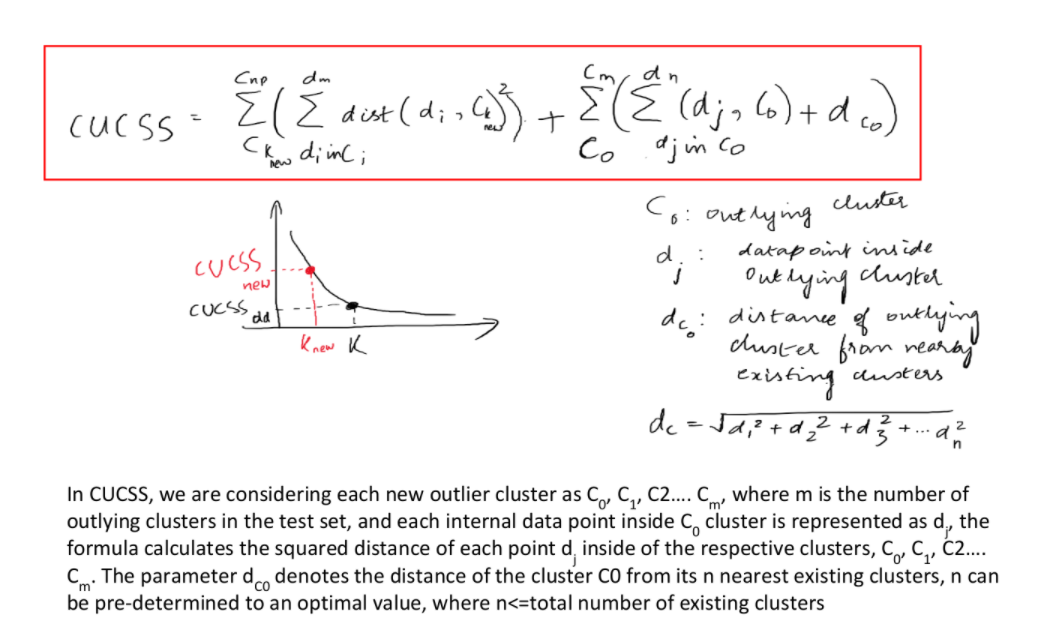 CUCSS = Σ_{C_{k new}}^{C_{np}} ( Σ_{d_i in C_i}^{d_m} dist(d_i, C_{k new})² ) + Σ_{C_0}^{C_m} ( Σ_{d_j in C_0}^{d_n} (d_j, C_0) + d_{C_0} )
C_0: outlying cluster
d_j: datapoint inside
outlying cluster
d_{C_0}: distance of outlying
cluster from nearby
existing clusters
d_c = √(d_1² + d_2² + d_3² + ... d_n²)
CUCSS
new
CUCSS
old
K_new K
In CUCSS, we are considering each new outlier cluster as C₀, C₁, C2.... C_m, where m is the number of
outlying clusters in the test set, and each internal data point inside C₀ cluster is represented as d_j, the
formula calculates the squared distance of each point d_j inside of the respective clusters, C₀, C₁, C2....
C_m. The parameter d_{C0} denotes the distance of the cluster C0 from its n nearest existing clusters, n can
be pre-determined to an optimal value, where n<=total number of existing clusters